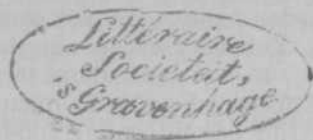 Littéraire
Societat,
'sGravenhage